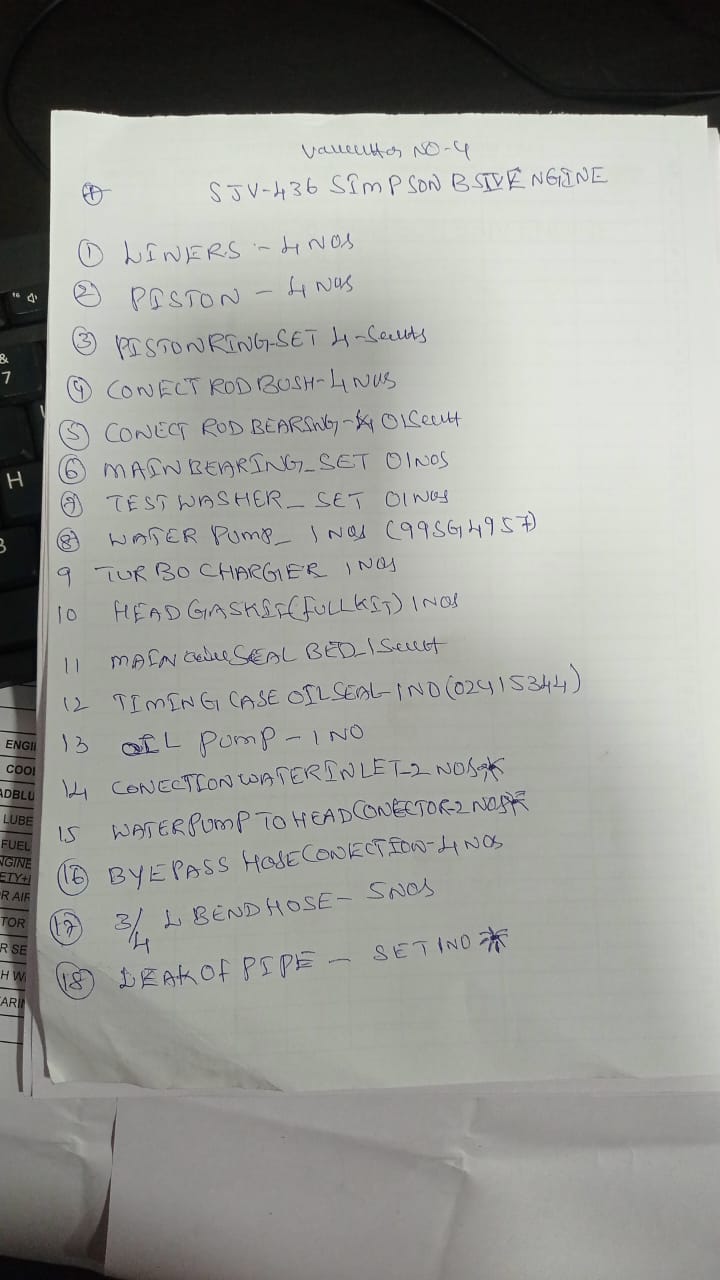 NO-4
SJV-436 SIMPSON BSIV ENGINE
① LINERS - 4 NOS
② PISTON - 4 NOS
③ PISTONRING-SET 4-
④ CONECT ROD BUSH-4 NOS
⑤ CONECT ROD BEARING - 01
⑥ MAIN BEARING_SET 01NOS
⑦ TEST WASHER_ SET 01 NOS
⑧ WATER PUMP_ 1 NOS (995G4957)
9 TURBO CHARGIER 1 NOS
10 HEAD GASKIT (FULLKIT) 1 NOS
11 MAIN SEAL BED_1
12 TIMING CASE OIL SEAL-1NO (02415344)
13 OIL PUMP - 1 NO
14 CONECTION WATER INLET-2 NOS
15 WATER PUMP TO HEAD CONECTOR-2 NOS
⑯ BYEPASS HOSE CONECTION-4 NOS
⑰ 3/4 L BEND HOSE - 5NOS
⑱ LEAK OF PIPE - SET 1NO *
&
7
H
ENGI
COO
ADBLU
LUBE
FUEL
NGINE
ETY+
R AIR
TOR
R SE
H W
ARIN